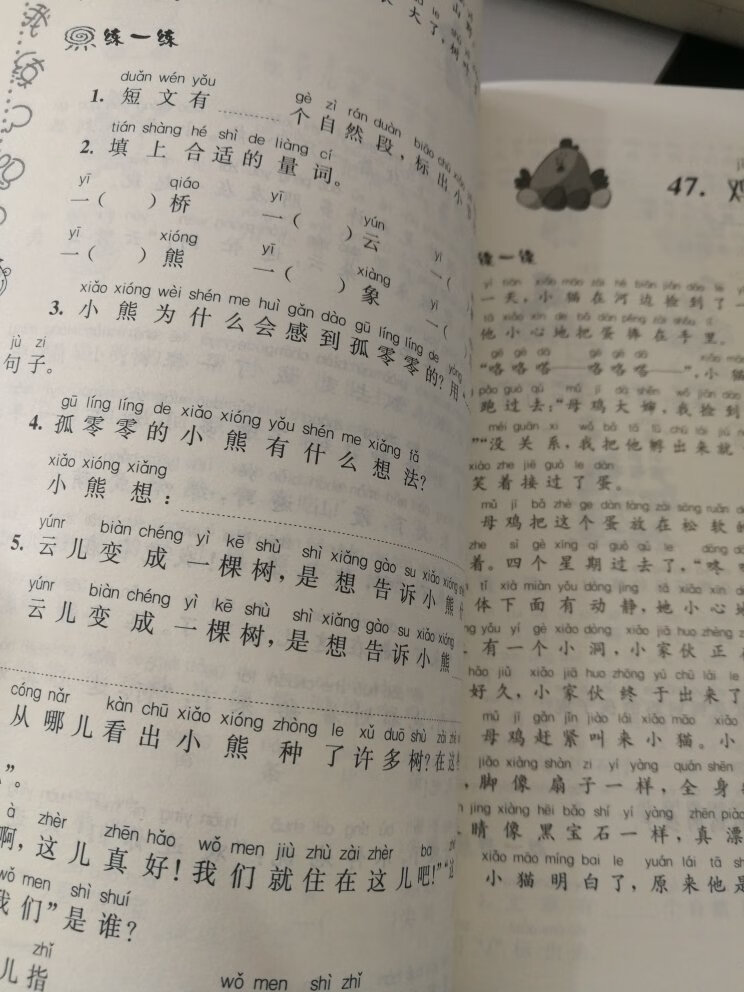 大了，树
练一练
duǎn wén yǒu gè zì rán duàn biāo chū
1. 短文有 个自然段，标出小
tián shàng hé shì de liàng cí
2. 填上合适的量词。
yī qiáo yī yún yī
一（ ）桥 一（ ）云 一（
yī xióng yī xiàng
一（ ）熊 一（ ）象 一（
xiǎo xióng wèi shén me huì gǎn dào gū líng líng de yòng
3. 小熊为什么会感到孤零零的？用
jù zi
句子。
gū líng líng de xiǎo xióng yǒu shén me xiǎng fǎ
4. 孤零零的小熊有什么想法？
xiǎo xióng xiǎng
小熊想：
yúnr biàn chéng yì kē shù shì xiǎng gào su xiǎo xióng
5. 云儿变成一棵树，是想告诉小熊
yúnr biàn chéng yì kē shù shì xiǎng gào su xiǎo xióng
云儿变成一棵树，是想告诉小熊
cóng nǎr kàn chū xiǎo xióng zhòng le xǔ duō shù zài
从哪儿看出小熊种了许多树？在这
”。
à zhèr zhēn hǎo wǒ men jiù zhù zài zhèr ba
啊，这儿真好！我们就住在这儿吧！”“这
wǒ men shì shuí
我们”是谁？
zhǐ wǒ men shì zhǐ
儿指
47.
练一练
yì tiān xiǎo māo zài hé biān jiǎn dào le
一天，小猫在河边捡到了一
tā xiǎo xīn de bǎ dàn pěng zài shǒu lǐ
他小心地把蛋捧在手里。
gē gē dā gē gē dā xiǎo māo
“咯咯嗒——咯咯嗒——”，小猫
pǎo guò qù mǔ jī dà shěn wǒ jiǎn dào
跑过去：“母鸡大婶，我捡到
méi guān xi wǒ bǎ tā fū chū lái jiù
”“没关系，我把他孵出来就
xiào zhe jiē guò le dàn
笑着接过了蛋。
mǔ jī bǎ zhè ge dàn fàng zài sōng ruǎn de
母鸡把这个蛋放在松软的
zhe sì gè xīng qī guò qù le dōng
着。四个星期过去了，“咚
tǐ xià miàn yǒu dòng jing tā xiǎo xīn de
体下面有动静，她小心地
yǒu yí gè xiǎo dòng xiǎo jiā huo zhèng zài
有一个小洞，小家伙正在
hǎo jiǔ xiǎo jiā huo zhōng yú chū lái le
好久，小家伙终于出来了
mǔ jī gǎn jǐn jiào lái xiǎo māo xiǎo
母鸡赶紧叫来小猫。小
jiǎo xiàng shàn zi yí yàng quán shēn
，脚像扇子一样，全身
jing xiàng hēi bǎo shí yí yàng zhēn piào
睛像黑宝石一样，真漂
xiǎo māo míng bai le yuán lái tā shì
小猫明白了，原来他是